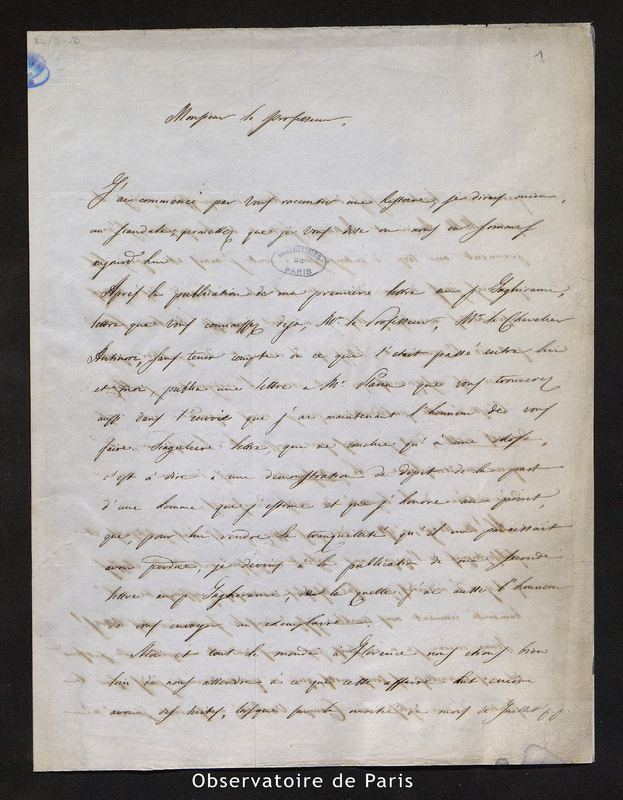 1
Monsieur le professeur,
J'ai commencé par vous raconter une histoire, je dirais mieux,
un scandale; permettez que je vous dise où nous en sommes
aujourd'hui
OBSERVATOIRE DE PARIS
Après la publication de ma première lettre au P. Inghirami,
lettre que vous connaissez deja, Mr. le Professeur, Mr. le Chevalier
Antinori, sans tenir compte de ce que s'était passé entre lui
et moi publia une lettre a Mr. Plana que vous trouverez
aussi dans l'envoi que j'ai maintenant l'honneur de vous
faire. Singuliere lettre, qui ne conclue qu'à une chose,
c'est à dire à une demonstration de depit de la part
d'une homme que j'estime et que j'honore au point,
que pour lui rendre la tranquillité qu'il me paraissait
avoir perdue, je devins à la publication de ma seconde
lettre au P. Inghirami, de la quelle j'ai aussi l'honneur
de vous envoyer un exemplaire.
Moi et tout le monde Florence nous étions bien
loin de nous attendre à ce que cette affaire dut encore
avoir des suites, lorsque sur la moitié du mois de Juillet pp.
Observatoire de Paris